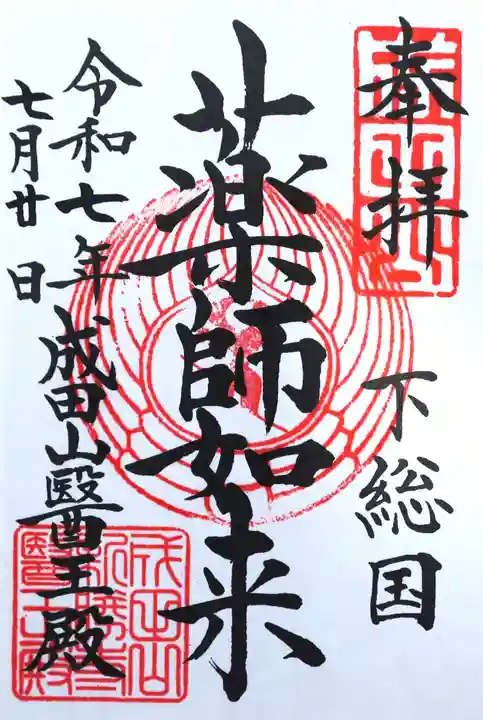 奉拝
下総国
薬師如来
成田山醫王殿
令和七年
七月廿日